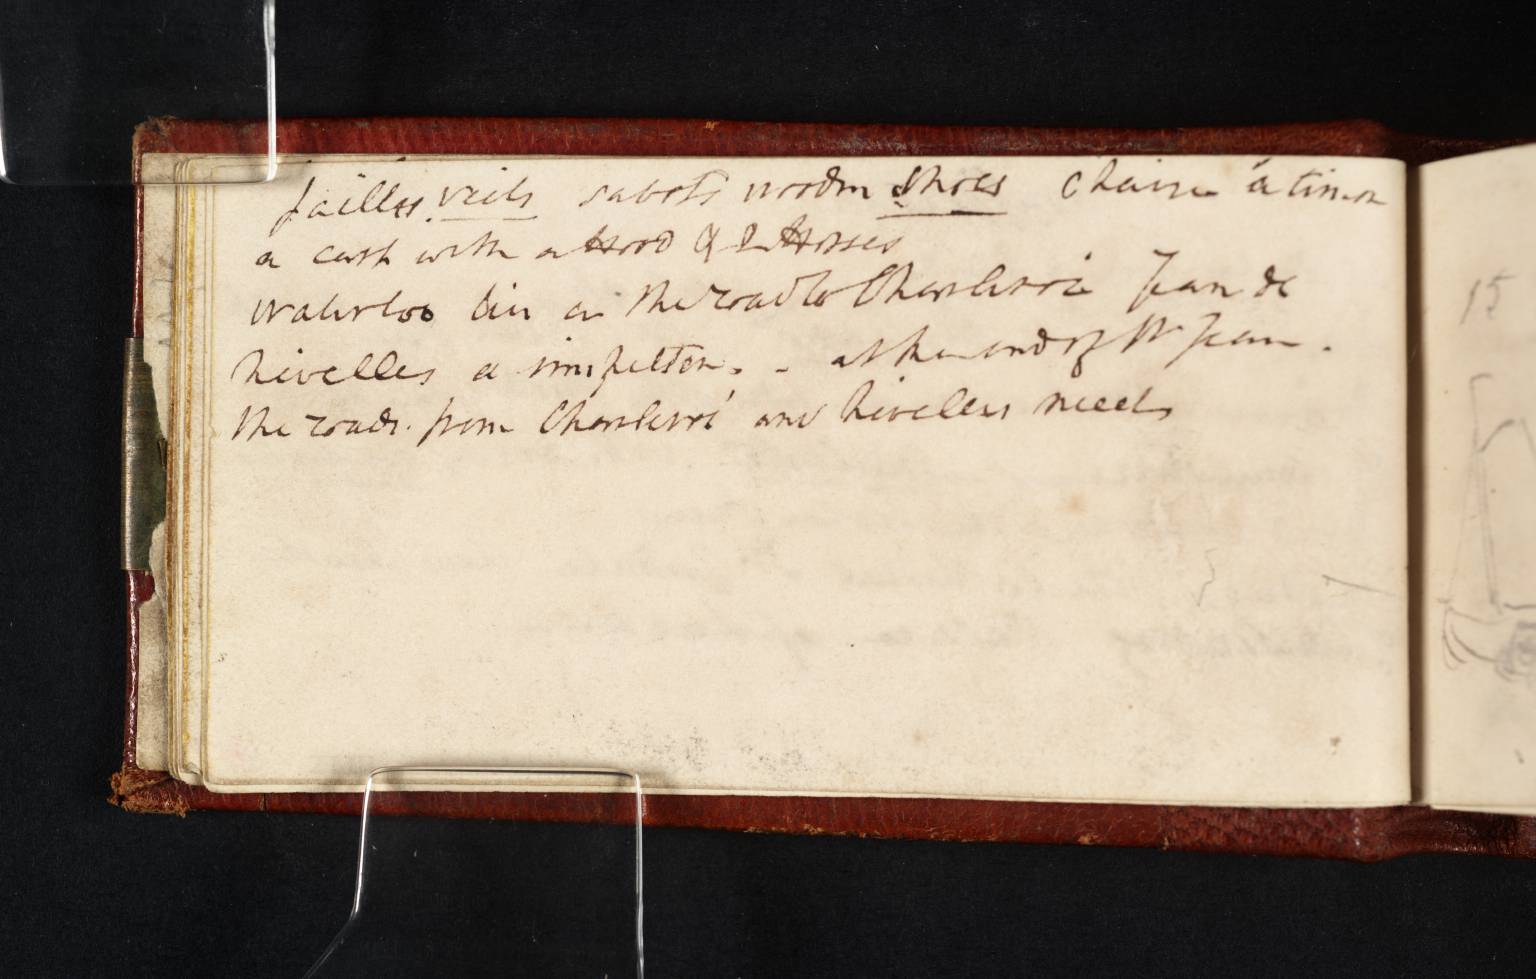 failles veils sabots wooden shoes Chaise à timon
a cart with a Hood & 2 Horses
Waterloo lies on the road to Charleroi Jean de
Nivelles a simpleton. - at the end of Mt Jean.
the roads from Charleroi and Nivelles meet
15